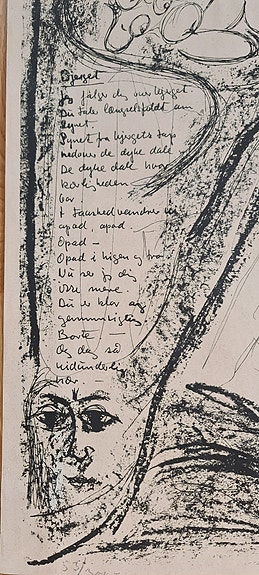 Bjerget
Jeg følger dig over bjerget
Du taler længselsfuldt om
synet.
Synet fra bjergets top
nedover de dybe dale
De dybe dale hvor
kærligheden
bor.
I taushed vandrer vi
opad, opad.
Opad —
Opad i higen og tro
Nu ser jeg dig
ikke mere.
Du er klar og
gennemsigtig
Borte
Og dog så
vidunderlig
nær. —